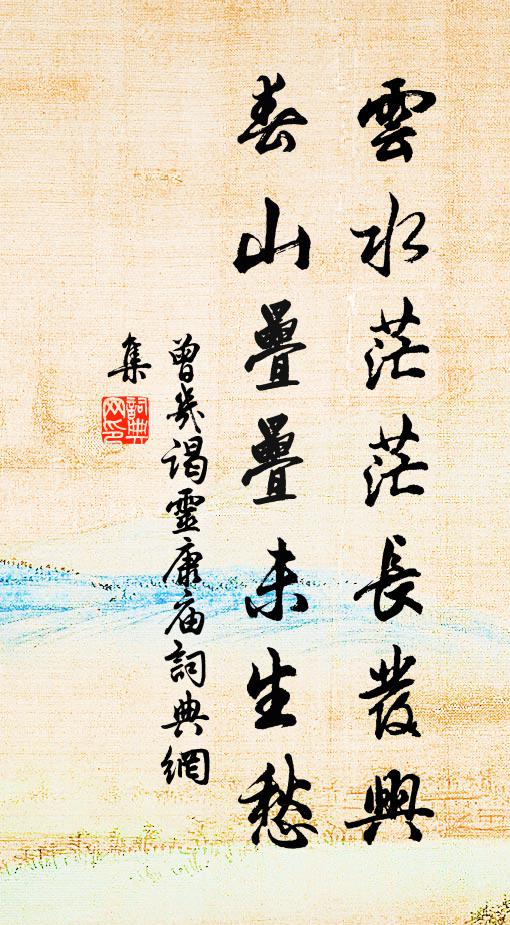 雲水茫茫長發興
春山疊疊未生愁
曾幾謁靈康廟詞典網
集
詞典
网印